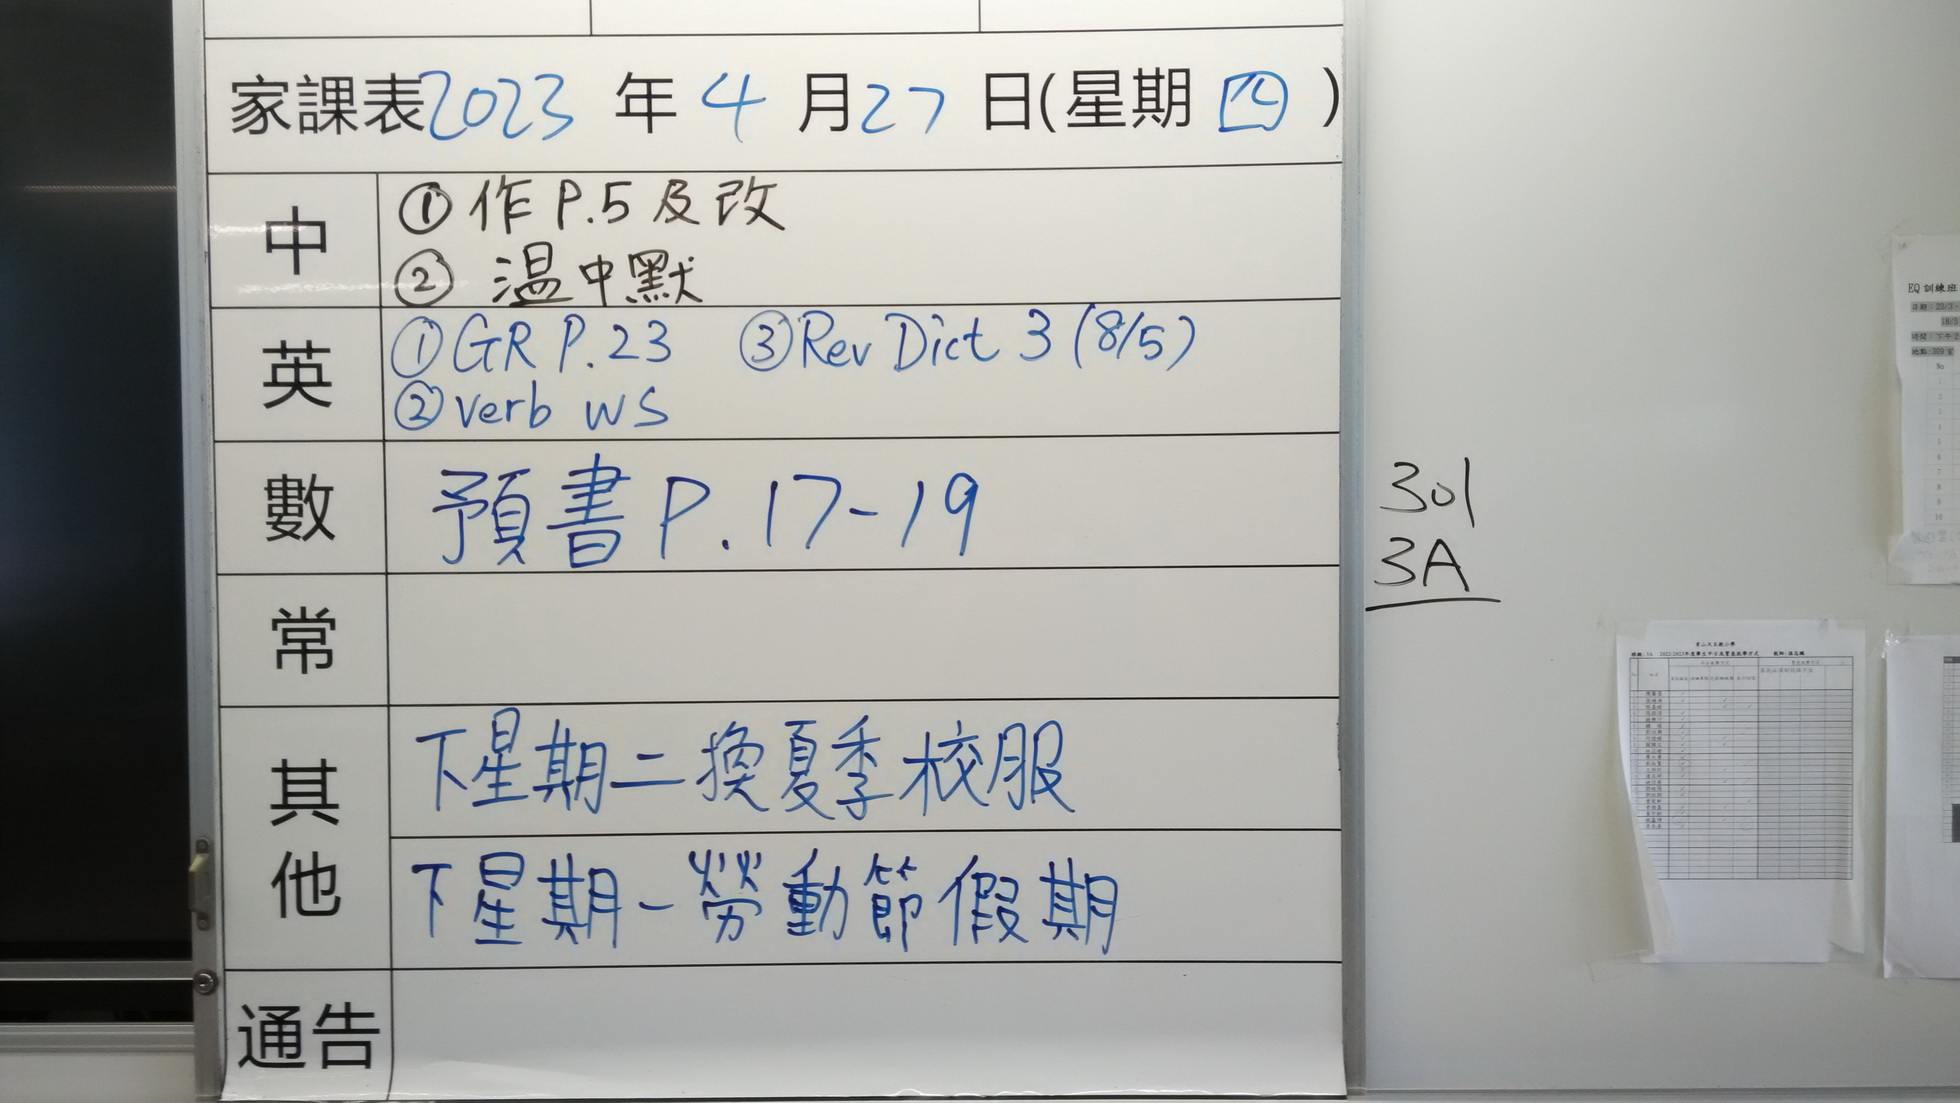 家課表2023年4月27日(星期四)
中
①作P.5及改
②溫中默
英
①GR P.23 ③Rev Dict 3 (8/5)
②verb ws
數
預書P.17-19
常
其他
下星期二換夏季校服
下星期一勞動節假期
通告
301
3A
EQ訓練班